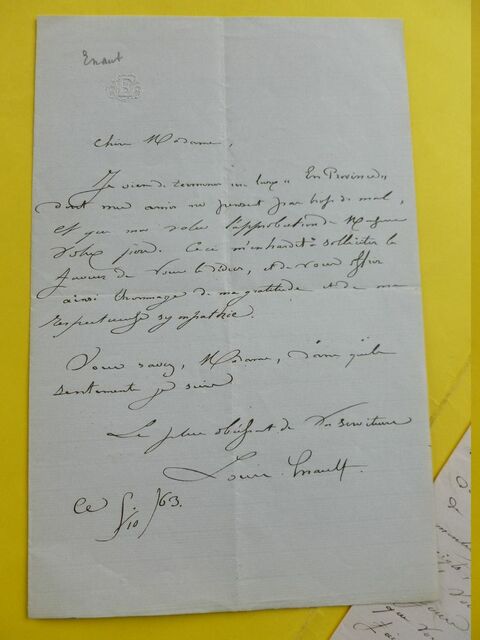 Enaut
E
Chère Madame,
Je viens de terminer un livre « En Province »
dont mes amis ne pensent pas trop de mal,
et que m'a valu l'approbation de Monsieur
votre père. Ceci m'enhardit à solliciter la
faveur de vous le dédier, et de vous offrir
ainsi l'hommage de ma gratitude et de ma
respectueuse sympathie.
Vous savez, Madame, dans quels
sentiments je suis
Le plus obéissant de vos serviteurs
Louis Enault.
Ce 5/10/63.